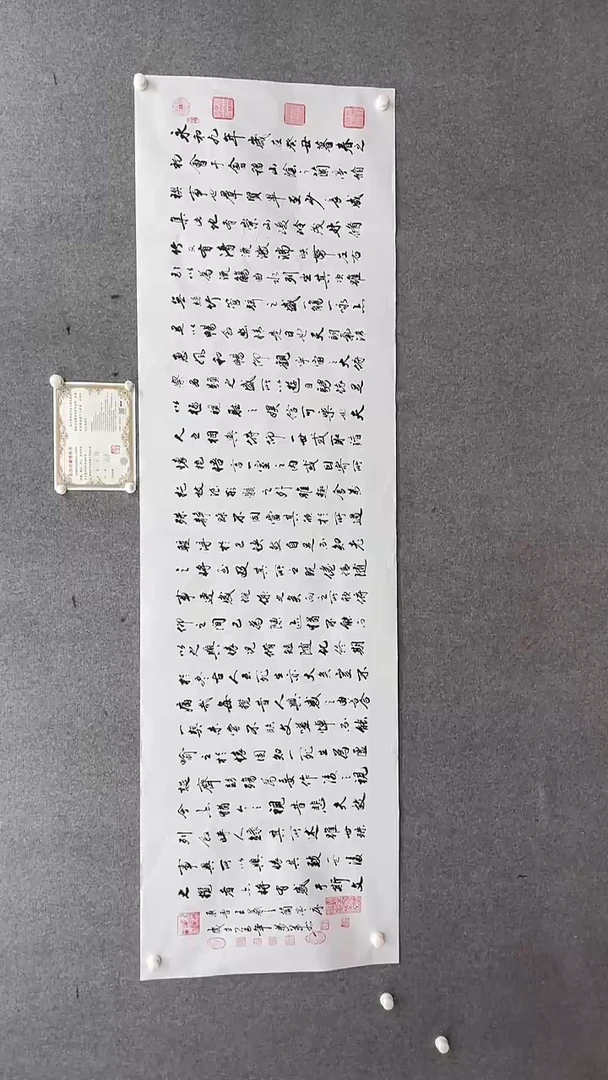 永和九年歲在癸丑暮春之
初會于會稽山陰之蘭亭脩
禊事也羣賢畢至少長咸
集此地有崇山峻領茂林脩
竹又有清流激湍映帶左右
引以為流觴曲水列坐其次雖
無絲竹管弦之盛一觴一詠亦
足以暢叙幽情是日也天朗氣清
惠風和暢仰觀宇宙之大俯
察品類之盛所以遊目騁懷足
以極視聽之娛信可樂也夫
人之相與俯仰一世或取諸
懷抱悟言一室之內或因寄所
託放浪形骸之外雖趣舍萬
殊靜躁不同當其欣於所遇
暫得於己快然自足不知老
之將至及其所之既惓情隨
事遷感慨係之矣向之所欣俯
仰之間已為陳迹猶不能不
以之興懷況脩短隨化終期
於盡古人云死生亦大矣豈不
痛哉每攬昔人興感之由若合
一契未嘗不臨文嗟悼不能
喻之於懷固知一死生為虛
誕齊彭殤為妄作後之視
今亦猶今之視昔悲夫故
列叙時人錄其所述雖世殊
事異所以興懷其致一也後
之攬者亦將有感于斯文
東晉王羲之蘭亭序